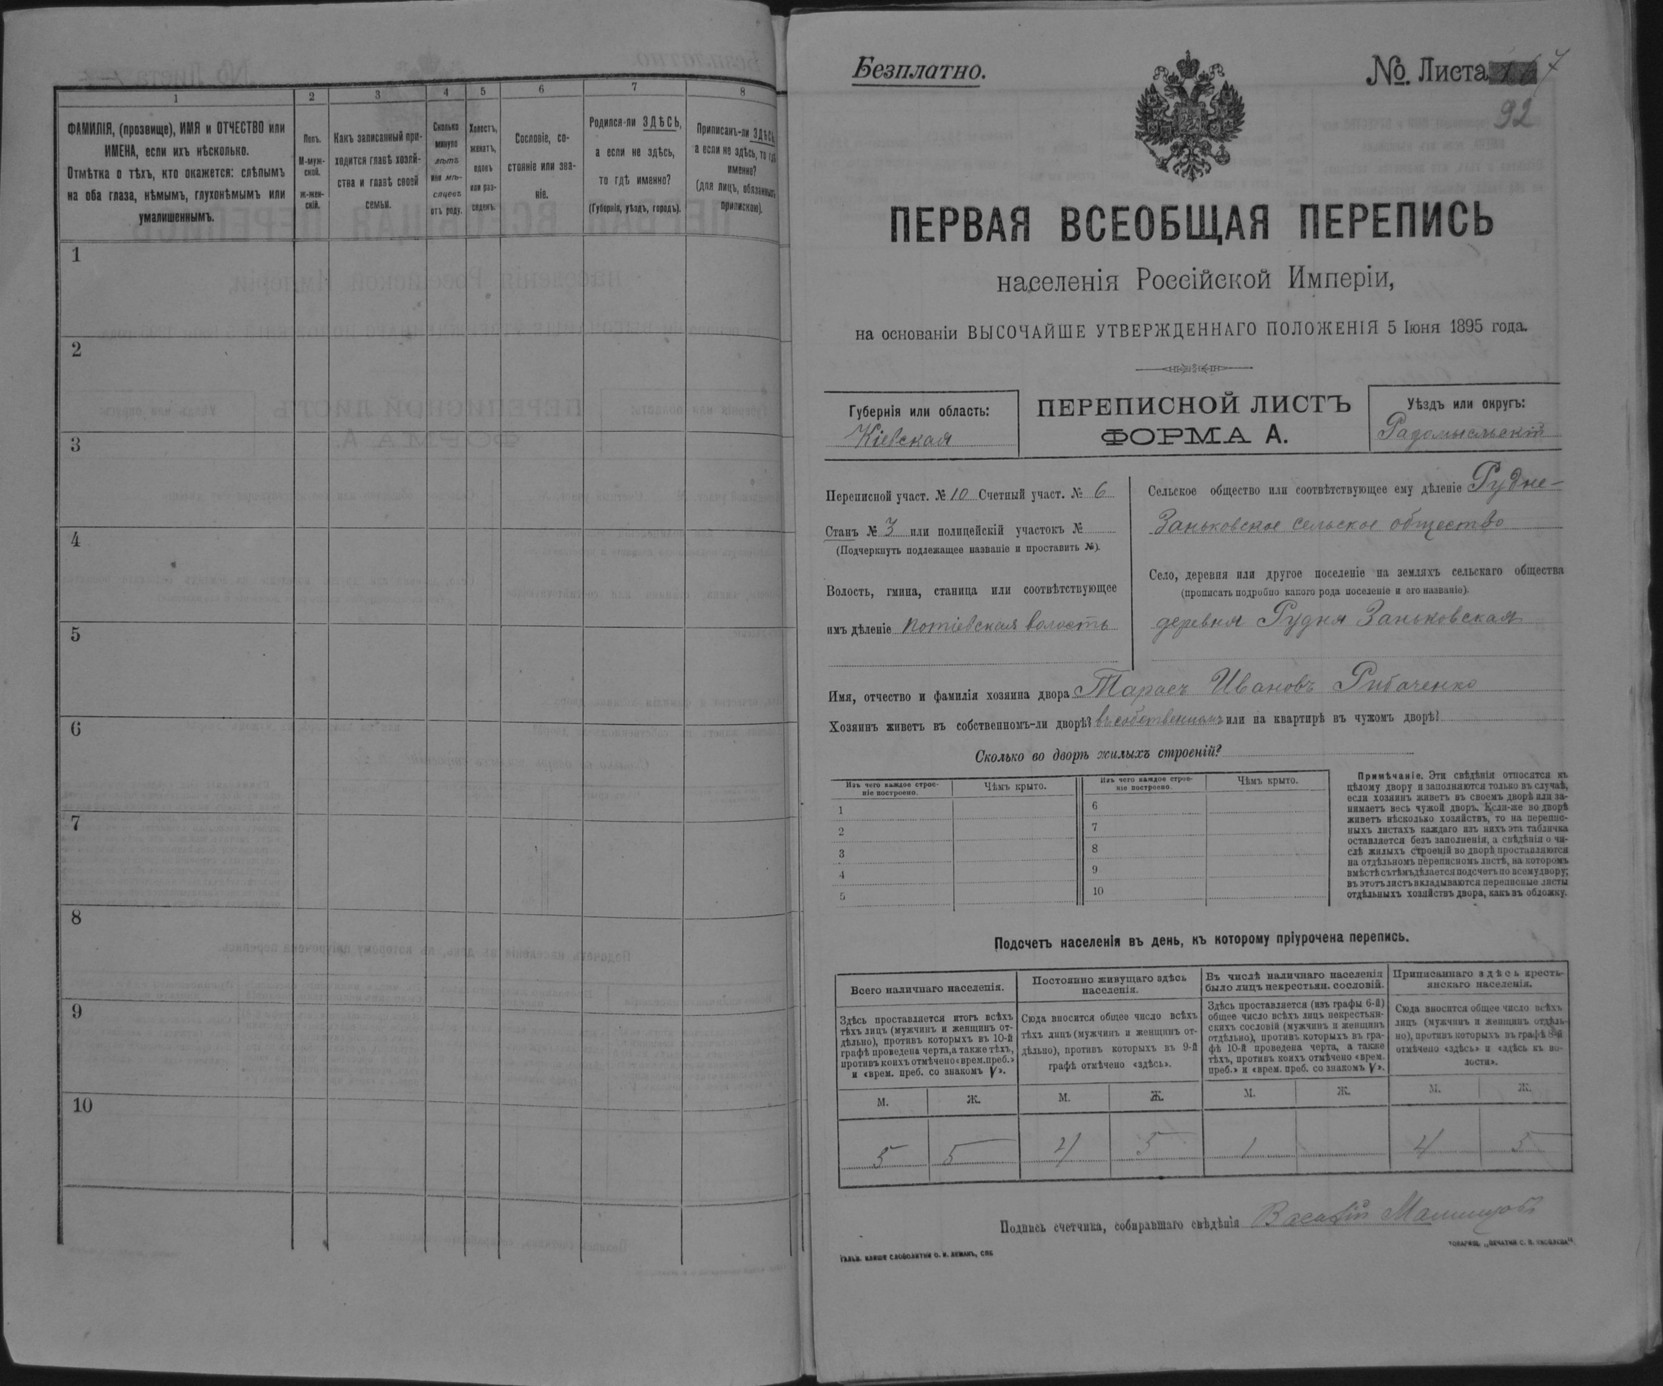 1 2 3 4 5 6 7 8
ФАМИЛІЯ, (прозвище), ИМЯ и ОТЧЕСТВО или
ИМЕНА, если ихъ нѣсколько.
Отмѣтка о тѣхъ, кто окажется: слѣпымъ
на оба глаза, нѣмымъ, глухонѣмымъ или
умалишеннымъ.
Полъ.
М-муж-
ской.
ж-жен-
скій.
Какъ записанный при-
ходится главѣ хозяй-
ства и главѣ своей
семьи.
Сколько
минуло
лѣтъ
или мѣ-
сяцевъ
отъ роду.
Холостъ,
женатъ,
вдовъ
или раз-
веденъ.
Сословіе, со-
стояніе или зва-
ніе.
Родился-ли ЗДѢСЬ,
а если не здѣсь,
то гдѣ именно?
(Губернія, уѣздъ, городъ).
Приписанъ-ли ЗДѢСЬ,
а если не здѣсь, то гдѣ
именно?
(для лицъ, обязанныхъ
припискою).
1
2
3
4
5
6
7
8
9
10
Безплатно.
№ Листа 7
92
ПЕРВАЯ ВСЕОБЩАЯ ПЕРЕПИСЬ
населенія Россійской Имперіи,
на основаніи ВЫСОЧАЙШЕ УТВЕРЖДЕННАГО ПОЛОЖЕНІЯ 5 Іюня 1895 года.
Губернія или область:
Кіевская
ПЕРЕПИСНОЙ ЛИСТЪ
ФОРМА А.
Уѣздъ или округъ:
Радомысльскій
Переписной участ. № 10 Счетный участ. № 6
Станъ № 3 или полицейскій участокъ №
(Подчеркнуть подлежащее названіе и проставить №).
Волость, гмина, станица или соотвѣтствующее
имъ дѣленіе Потіевская волость
Сельское общество или соотвѣтствующее ему дѣленіе Рудне-
Заньковское сельское общество
Село, деревня или другое поселеніе на земляхъ сельскаго общества
(прописать подробно какого рода поселеніе и его названіе).
деревня Рудня Заньковская
Имя, отчество и фамилія хозяина двора Тарасъ Ивановъ Рибаченко
Хозяинъ живетъ въ собственномъ-ли дворѣ? въ собственномъ или на квартирѣ въ чужомъ дворѣ?
Сколько во дворѣ жилыхъ строеній?
Изъ чего каждое строе-
ніе построено.
Чѣмъ крыто.
Изъ чего каждое строе-
ніе построено.
Чѣмъ крыто.
1
2
3
4
5
6
7
8
9
10
Примѣчаніе. Эти свѣдѣнія относятся къ
цѣлому двору и заполняются только въ случаѣ,
если хозяинъ живетъ въ своемъ дворѣ или за-
нимаетъ весь чужой дворъ. Если-же во дворѣ
живетъ нѣсколько хозяйствъ, то на перепис-
ныхъ листахъ каждаго изъ нихъ эта табличка
оставляется безъ заполненія, а свѣдѣнія о чи-
слѣ жилыхъ строеній во дворѣ проставляются
на отдѣльномъ переписномъ листѣ, на которомъ
вмѣстѣ съ тѣмъ дѣлается подсчетъ по всему двору;
въ этотъ листъ вкладываются переписные листы
отдѣльныхъ хозяйствъ двора, какъ въ обложку.
Подсчетъ населенія въ день, къ которому пріурочена перепись.
Всего наличнаго населенія.
Здѣсь проставляется итогъ всѣхъ
тѣхъ лицъ (мужчинъ и женщинъ от-
дѣльно), противъ которыхъ въ 10-й
графѣ проведена черта, а также тѣхъ,
противъ коихъ отмѣчено «врем. преб.»
и «врем. преб. со знакомъ V».
Постоянно живущаго здѣсь
населенія.
Сюда вносится общее число всѣхъ
тѣхъ лицъ (мужчинъ и женщинъ от-
дѣльно), противъ которыхъ въ 9-й
графѣ отмѣчено «здѣсь».
Въ числѣ наличнаго населенія
было лицъ некрестьян. сословій.
Здѣсь проставляется (изъ графы 6-й)
общее число всѣхъ лицъ некрестьян-
скихъ сословій (мужчинъ и женщинъ
отдѣльно), противъ которыхъ въ гра-
фѣ 10-й проведена черта, а также
тѣхъ, противъ коихъ отмѣчено «врем.
преб.» и «врем. преб. со знакомъ V».
Приписаннаго здѣсь кресть-
янскаго населенія.
Сюда вносится общее число всѣхъ
лицъ (мужчинъ и женщинъ отдѣль-
но), противъ которыхъ въ графѣ 8-й
отмѣчено «здѣсь» и «здѣсь къ во-
лости».
М. Ж. М. Ж. М. Ж. М. Ж.
5 5 4 5 1 4 5
Подпись счетчика, собиравшаго свѣдѣнія Василій